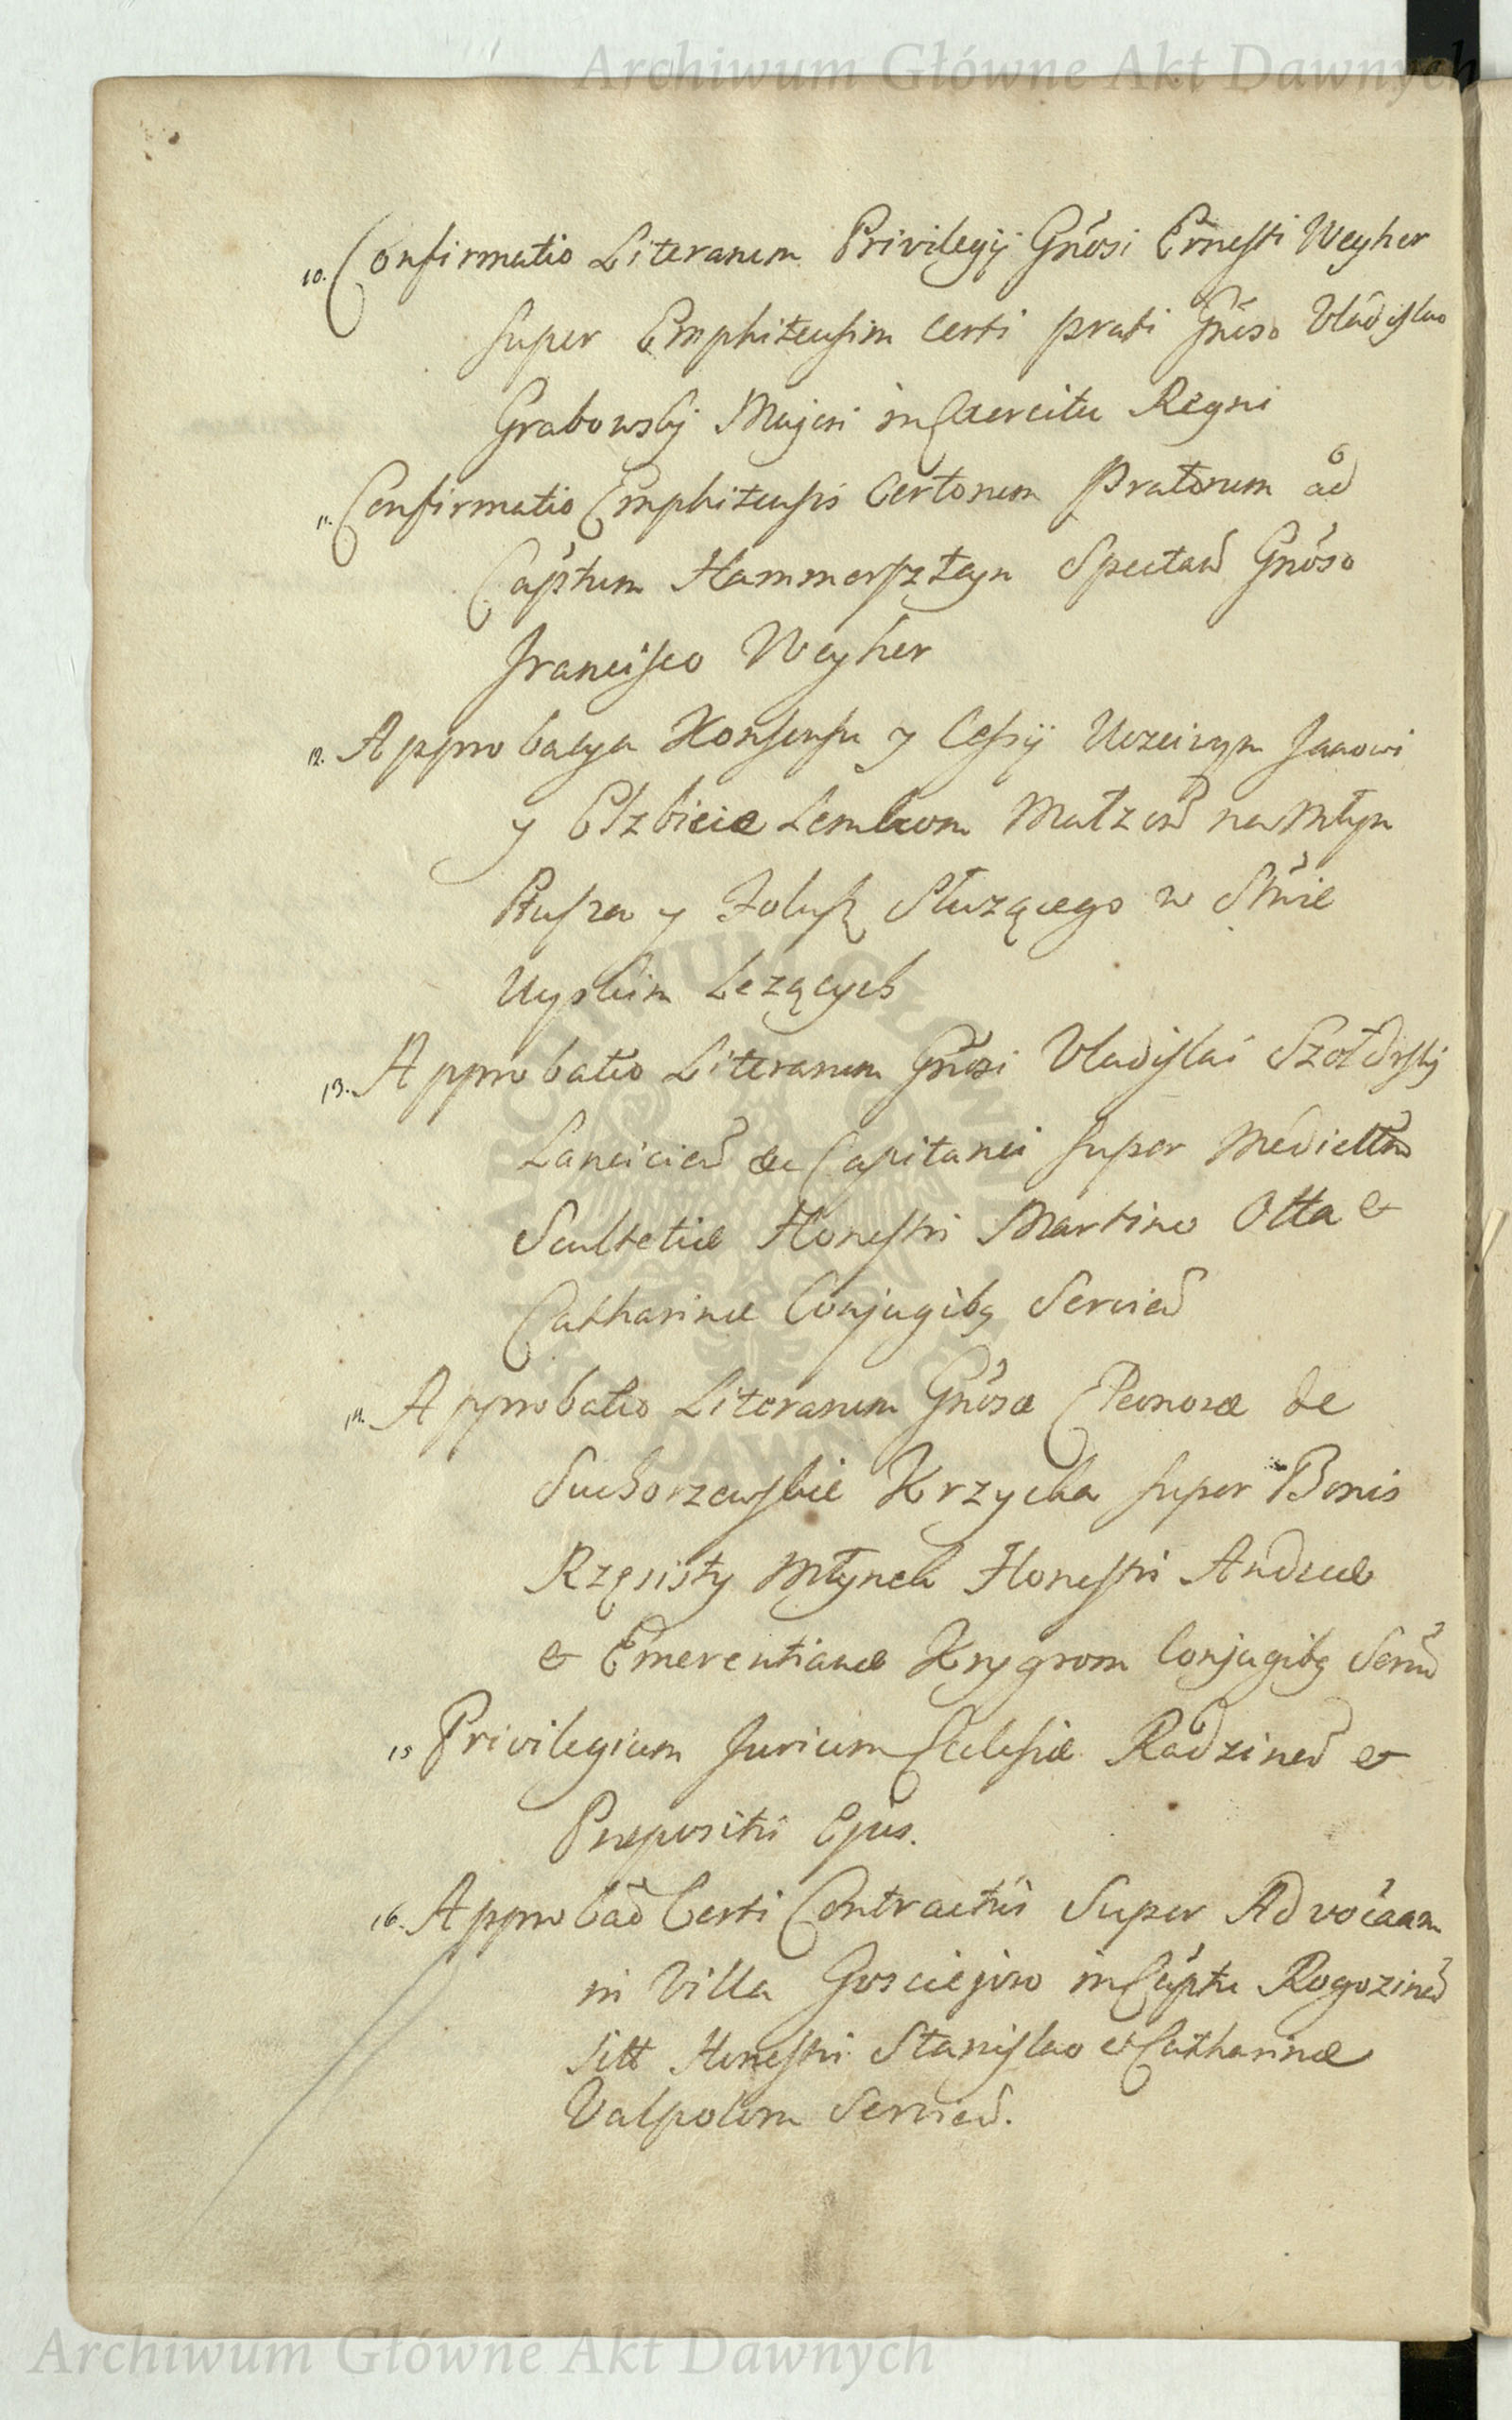 Archiwum Główne Akt Dawnych
10. Confirmatio Literarum Privilegij Gnosi Ernesti Weyher
super Emphiteusim certi prati Gnoso Vladislao
Grabowskj Majori in Exercitu Regni
11. Confirmatio Emphiteusis certorum Pratorum ad
Captum Hammerszteyn Spectan Gnoso
Francisco Weyher
12. Approbacya Konsensu y Cessij Uczciwym Janowi
y Elzbiecie Lemkom Małzon na Młyn
Ptusza y Folusz Służącego w Stwie
Uyskim Leżących
13. Approbatio Literarum Gnosi Vladislai Szołdrskj
Lancicien &c Capitanei super Mediettem
Scultetiae Honestis Martino Otta &
Catharinae Conjugibq Servien
14. Approbatio Literarum Gnosae Eleonorae de
Suchorzewskie Krzycka super Bonis
Rzęsisty Młynek Honestis Andreae
& Emerentianae Krygrom Conjugibq Servien
15 Privilegium Jurium Ecclesiae Radzinen &
Praepositi Ejus.
16. Approbao Certi Contractus Super Advocaam
in Villa Gosciejewo in Captu Rogozinen
sitt Honestis Stanislao et Catharinae
Valpolom Servien.
ARCHIWUM GŁÓWNE
AKT DAWNYCH
Archiwum Główne Akt Dawnych